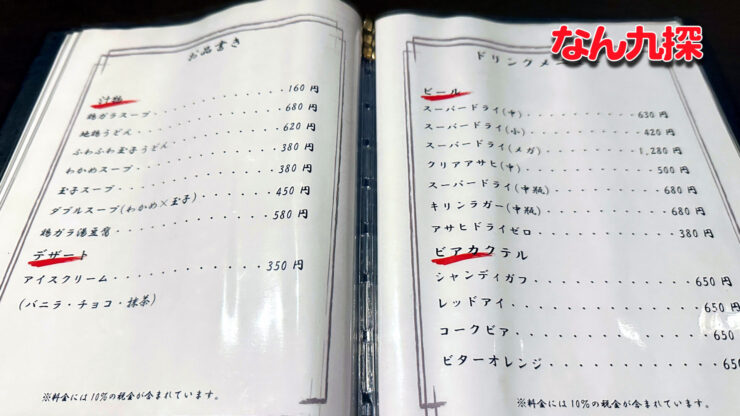 お品書き
汁物
鶏ガラスープ 160円
地鶏うどん 680円
ふわふわ玉子うどん 620円
わかめスープ 380円
玉子スープ 380円
ダブルスープ(わかめ×玉子) 450円
鶏ガラ湯豆腐 580円
デザート
アイスクリーム 350円
(バニラ・チョコ・抹茶)
※料金には10%の税金が含まれています。
なん九探
ドリンクメ
ビール
スーパードライ(中) 630円
スーパードライ(小) 420円
スーパードライ(メガ) 1,280円
クリアアサヒ(中) 500円
スーパードライ(中瓶) 680円
キリンラガー(中瓶) 680円
アサヒドライゼロ 380円
ビアカクテル
シャンディガフ 650円
レッドアイ 650円
コークビア 650
ビターオレンジ 650
※料金には10%の税金が含まれています。